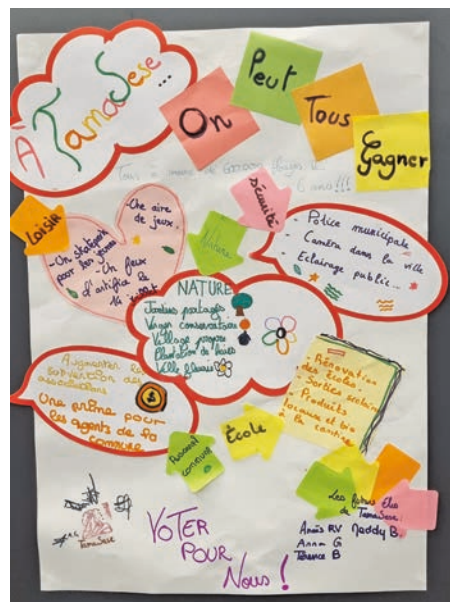 À TamaSese...
On
Peut
Tous
Gagner
6 ans !!!
Loisir
-Une aire
de jeux.
-Un skatepark
pour les jeunes
-Un feux
d'artifice le
14 juillet
sécurité
Nature
- Police municipale
- Caméra dans la ville
- Eclairage public...
NATURE
Jardins partagés
Verger conservatoire
Village propre
Plantation de haies
Ville fleurie
Augmenter les
subvention des
associations
Une prime pour
les agents de la
commune
$
École
- Rénovation
des écoles.
- Sorties scolaire
- Produits
locaux et bio
à la cantine
Personnel
communal
Les futurs élus
de TamaSese:
Anaïs RV Naddy B.
Anna G
Térence B
TamaSese
VOTER
POUR
Nous !